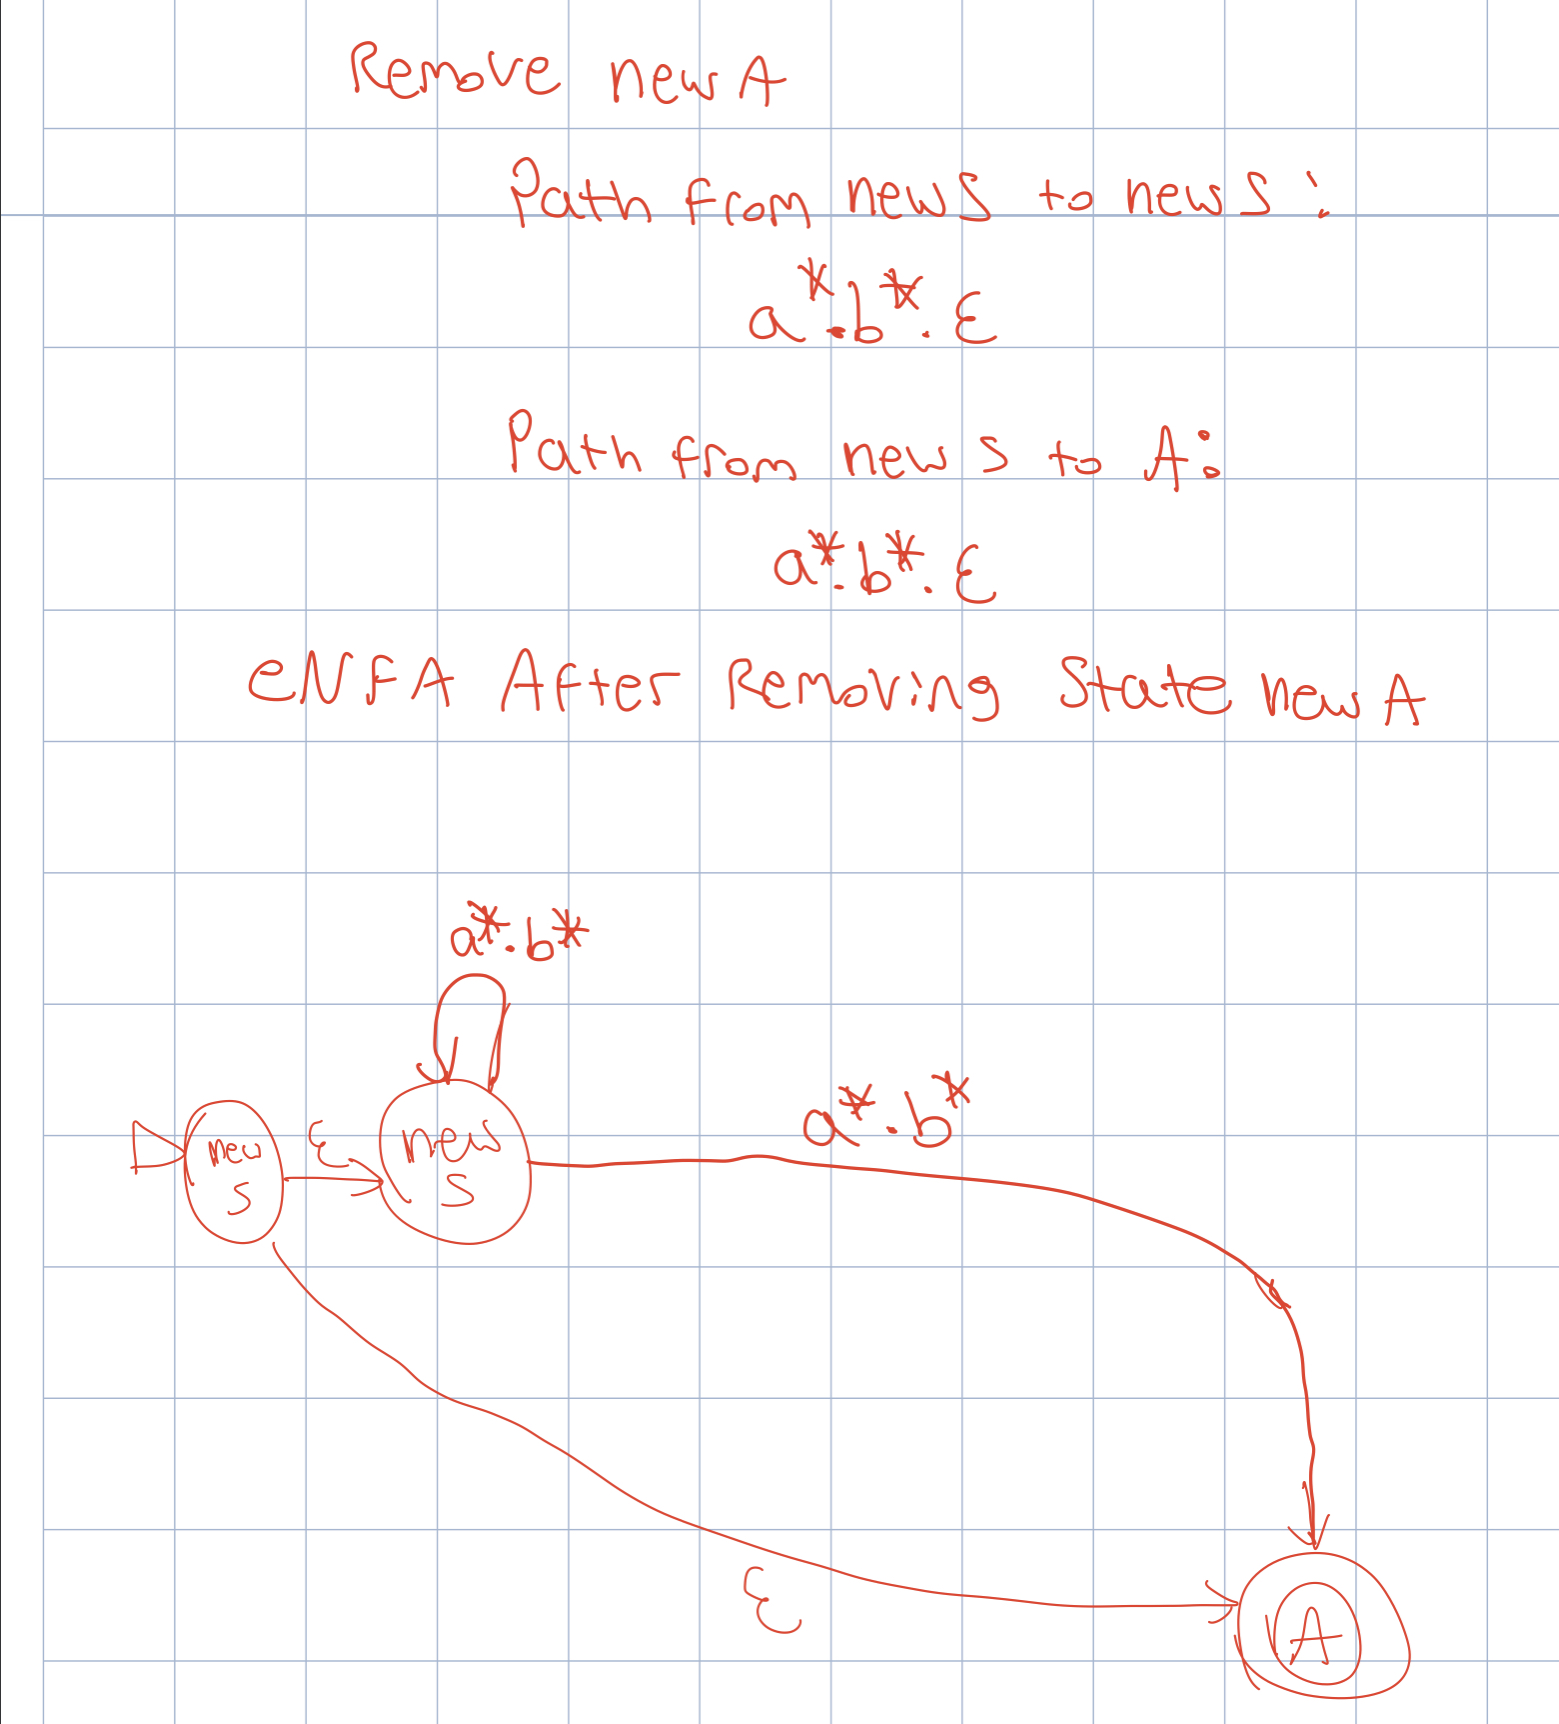 Remove new A
Path from new S to new S :
a*.b*.ε
Path from new S to A:
a*.b*.ε
eNFA After Removing State new A
a*.b*
a*.b*
new
S
ε
new
S
ε
A